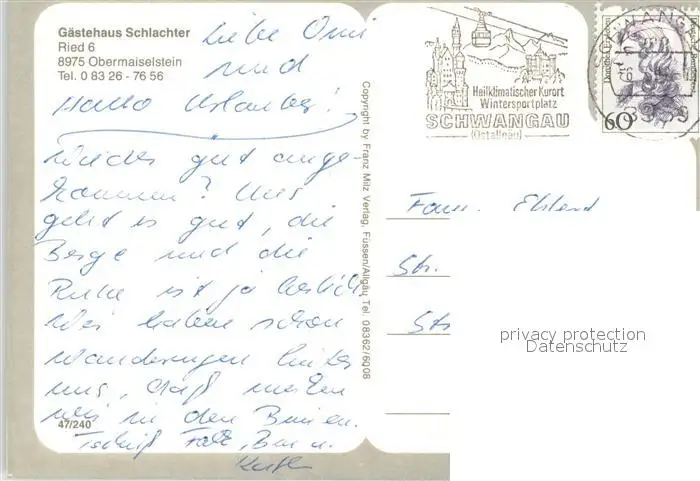 Gästehaus Schlachter
Ried 6
8975 Obermaiselstein
Tel. 0 83 26 - 76 56
Liebe Omi
und
Hallo Urlauber!
Wieder gut ange-
kommen? Uns
geht es gut, die
Berge und die
Ruhe ist ja
Wir haben schon
Wanderungen hinter
uns, daß merken
wir in den Beinen.
47/240
Copyright by Franz Milz Verlag, Füssen/Allgäu, Tel. 08362/6008
Heilklimatischer Kurort
Wintersportplatz
SCHWANGAU
(Ostallgäu)
60
Fam.
Str.
privacy protection
Datenschutz